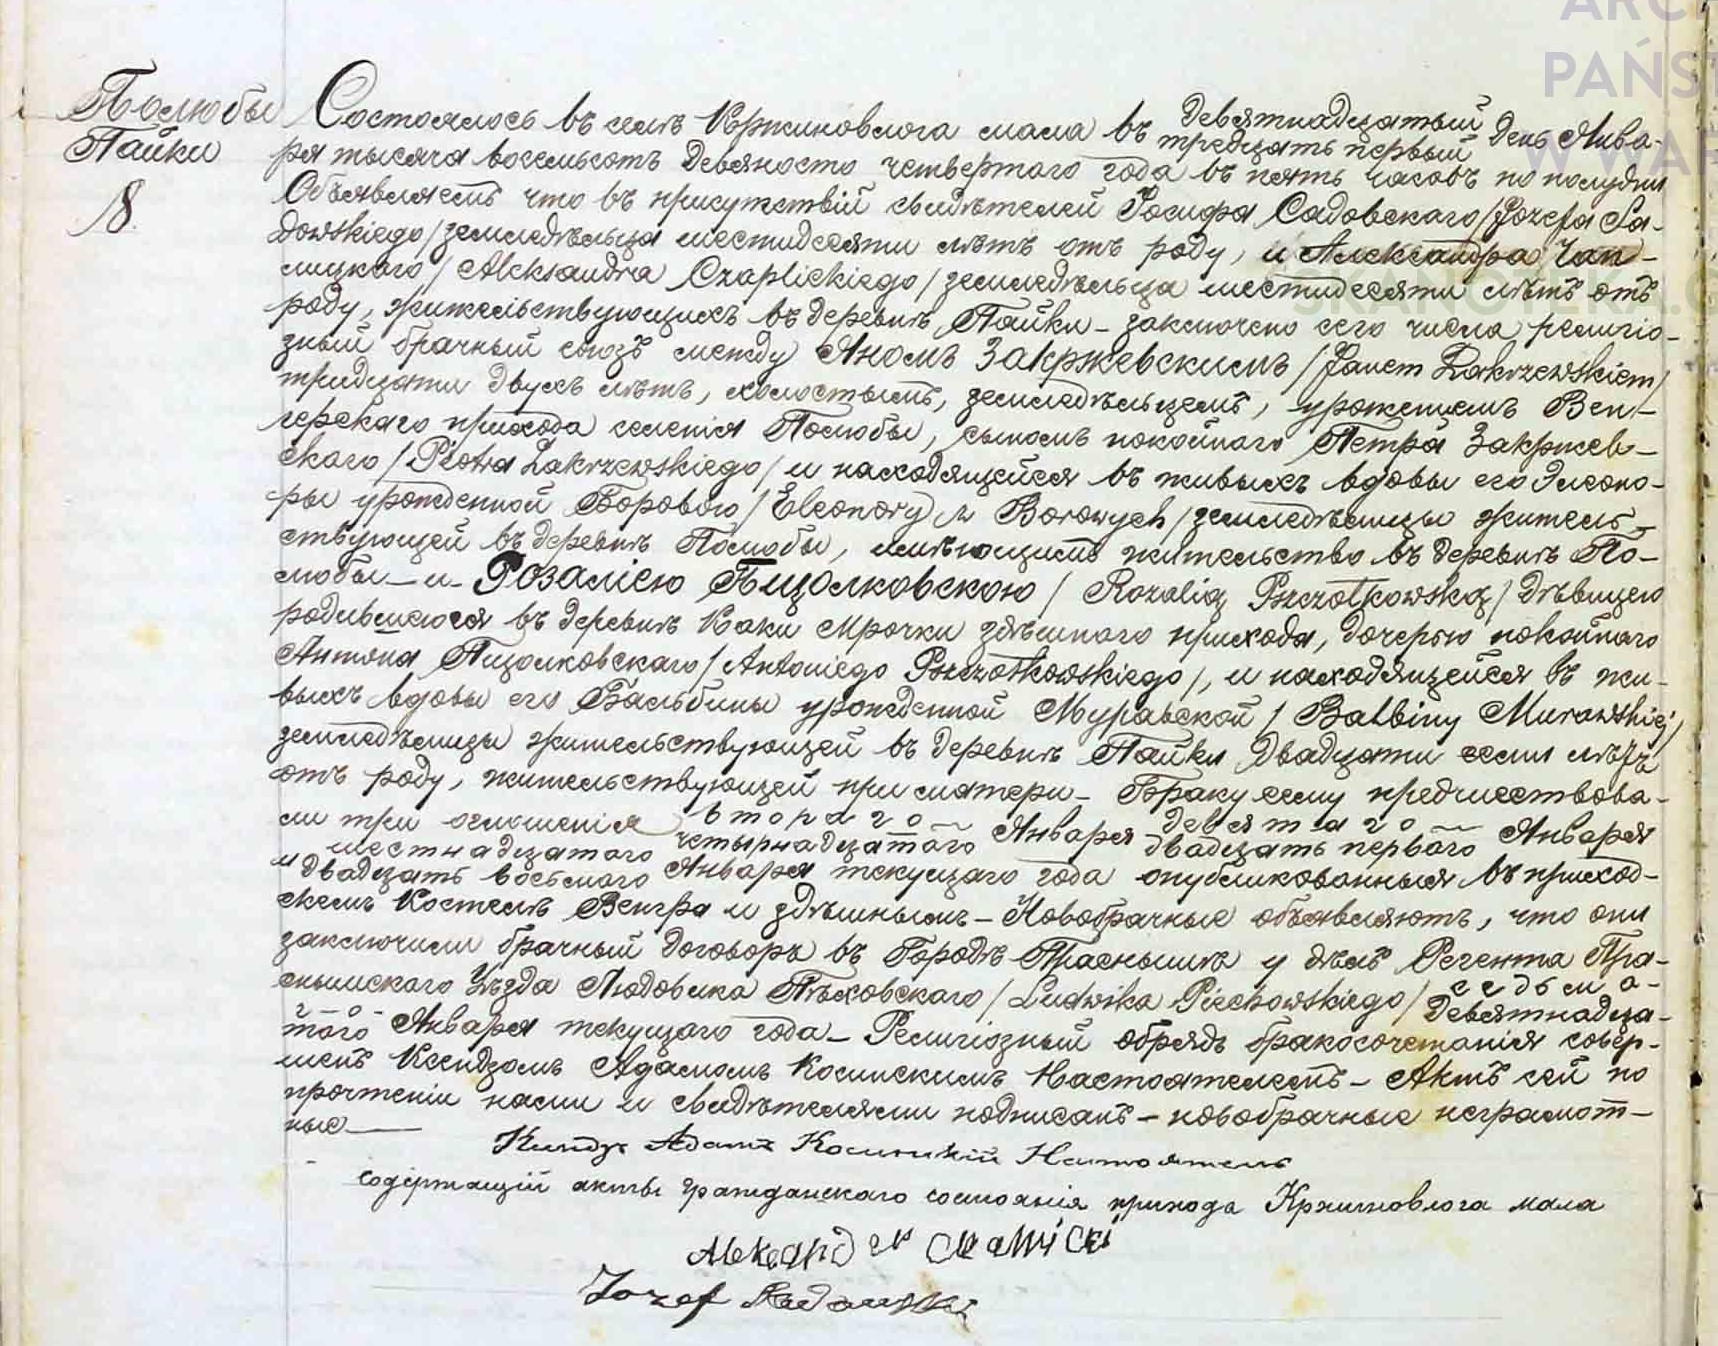 Полюбы
Пайки
8.
Состоялось въ селѣ Кржиновлога мала въ девятнадцатый / тридцать первый день Янва-
ря тысяча восемьсотъ девяносто четвертого года въ пять часовъ по полудни
Объявляемъ что въ присутствій свидѣтелей Іосифа Садовскаго /Józefa Sa-
dowskiego/ земледѣльца шестидесяти лѣтъ отъ роду, и Александра Чап-
лицкаго /Aleksandra Czaplickiego/ земледѣльца шестидесяти лѣтъ отъ
роду, жительствующихъ въ деревнѣ Пайки – заключено сего числа религіо-
зный брачный союзъ между Яномъ Закржевскимъ /Janem Zakrzewskiem/
тридцати двухъ лѣтъ, холостымъ, земледѣльцемъ, уроженцемъ Вен-
герскаго прихода селенія Полюбы, сыномъ покойнаго Петра Закржев-
скаго /Piotra Zakrzewskiego/ и находящейся въ живыхъ вдовы его Элеоно-
ры урожденной Боровыхъ /Eleonory z Borowych/ земледѣлицы житель-
ствующей въ деревнѣ Полюбы, имѣющимъ жительство въ деревнѣ По-
любы – и – Розаліею Пщолковскою /Rozalią Pszczołkowską/ дѣвицею
родившеюся въ деревнѣ Каки Мрочки здѣшнаго прихода, дочерью покойнаго
Антона Пщолковскаго /Antoniego Pszczołkowskiego/, и находящейся въ жи-
выхъ вдовы его Бальбины урожденной Муравской /Balbiny Murawskiej/
земледѣлицы жительствующей въ деревнѣ Пайки двадцати семи лѣтъ
отъ роду, жительствующей при матери – Браку сему предшествова-
ли три оглашенія второго / четырнадцатого Января девятаго / двадцать первого Января
и шестнадцатого / двадцать восьмого Января текущаго года опубликованныя въ приход-
скемъ Костелѣ Венгра и здѣшнымъ – Новобрачные объявляютъ, что они
заключили брачный договоръ въ Городѣ Праснышѣ у дѣлъ Регента Пра-
снышскаго Уѣзда Людовика Пѣховскаго /Ludwika Piechowskiego/ седьмо- / девятнадца-
го / того Января текущаго года – Религіозный обрядъ бракосочетанія совер-
шенъ Ксендзомъ Адамомъ Косинскимъ Настоятелемъ – Актъ сей по
прочтеніи нами и свидѣтелями подписанъ – новобрачные неграмот-
ные
Ксендзъ Адамъ Косинскій Настоятель
содержащій акты гражданскаго состоянія прихода Кржиновлога мала
Aleksander
Jozef Sadowski
ARCH
PAŃST
W WAR
SKANOTEKA.G